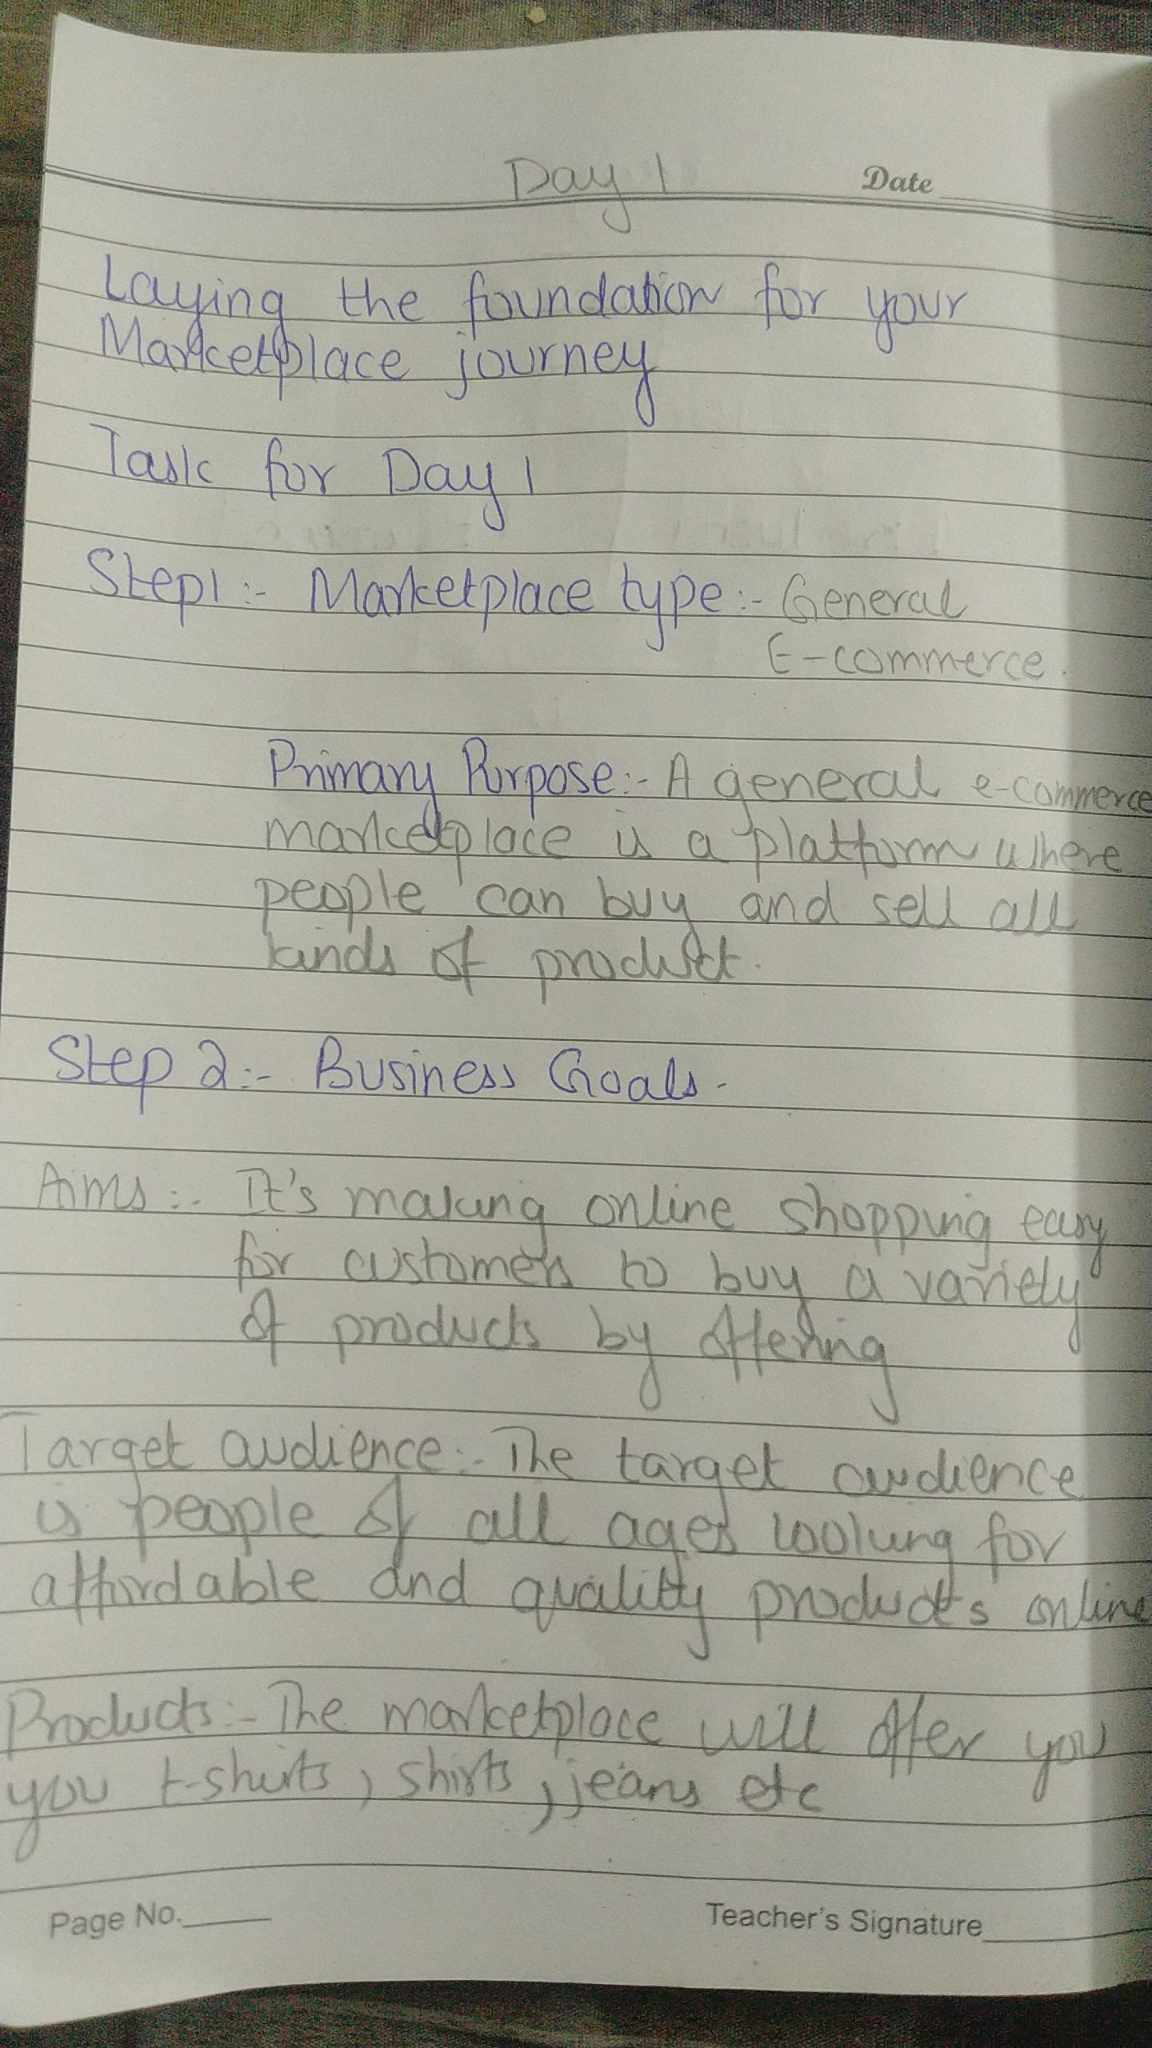 Day 1
Date
Laying the foundation for your
Marketplace journey
Task for Day 1
Step1:- Marketplace type:- General
E-commerce.
Primary Purpose:- A general e-commerce
marketplace is a platform where
people can buy and sell all
kinds of product.
Step 2:- Business Goals-
Aims:- It's making online shopping easy
for customers to buy a variety
of products by offering
Target audience:- The target audience
is people of all ages looking for
affordable and quality products online
Products:- The marketplace will offer you
you t-shirts, shirts, jeans etc
Page No.
Teacher's Signature